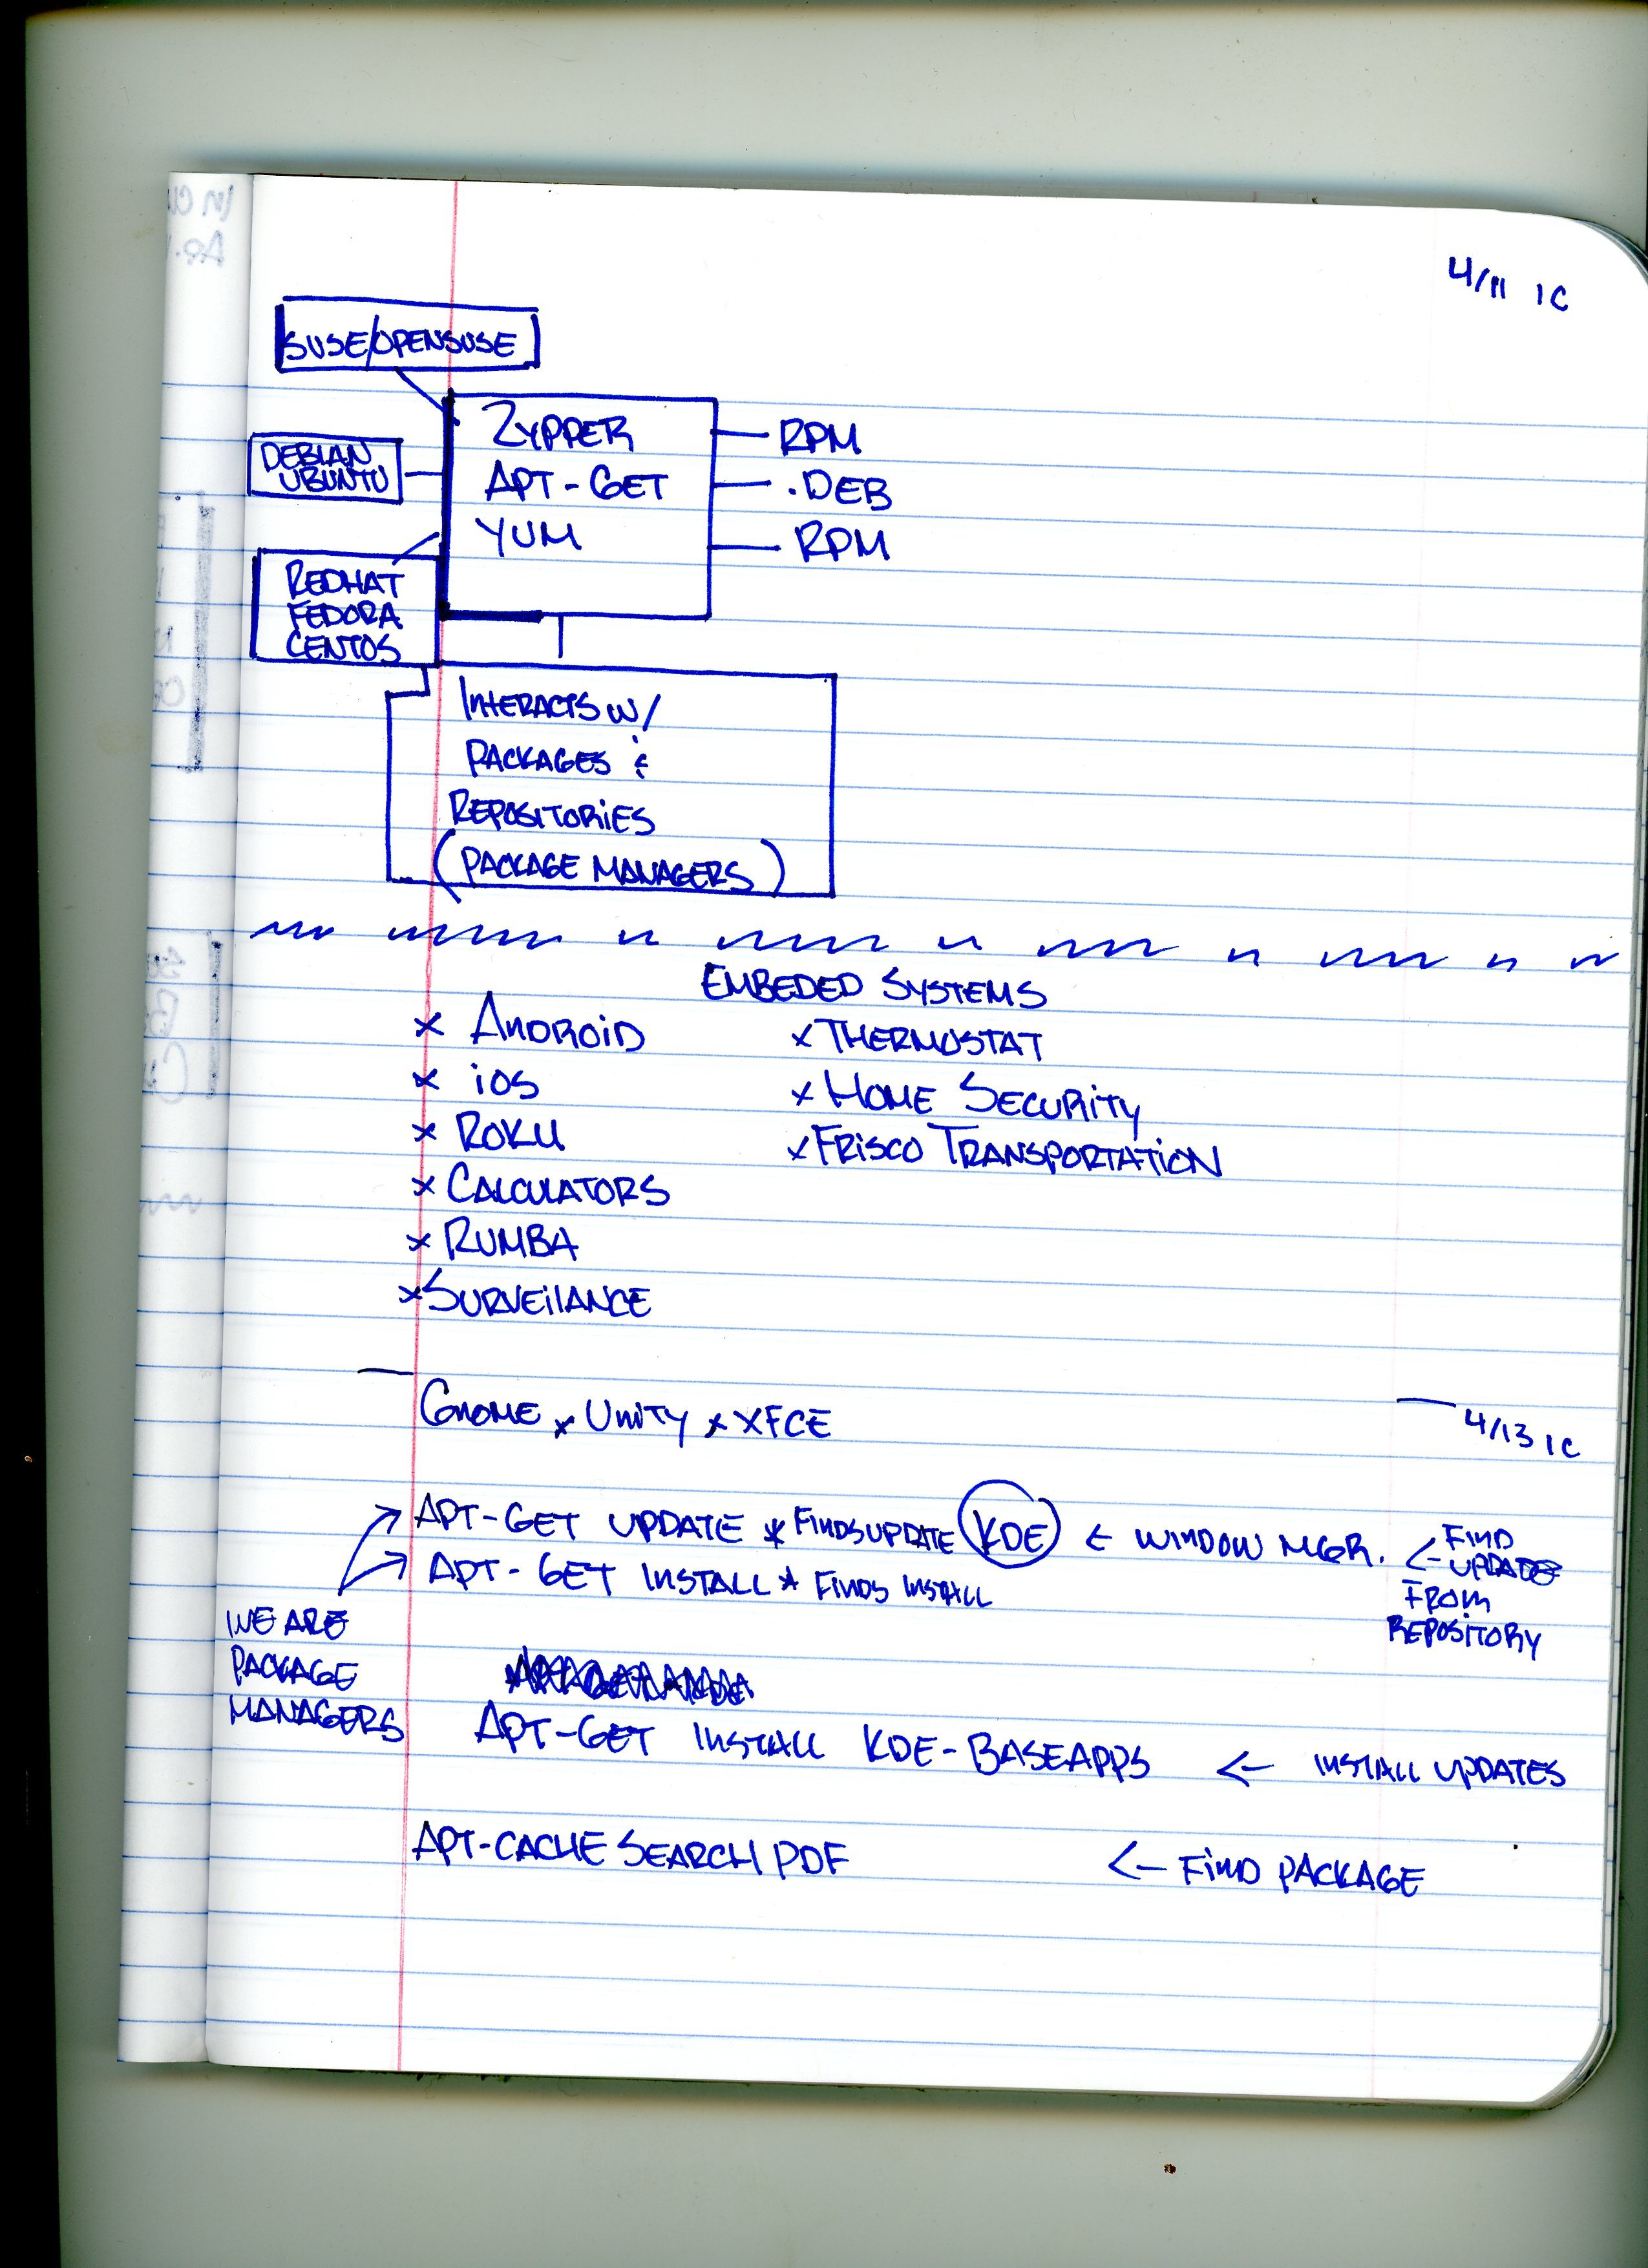 4/11 1C
SUSE/OPENSUSE
ZYPPER
RPM
DEBIAN
UBUNTU
APT-GET
.DEB
YUM
RPM
REDHAT
FEDORA
CENTOS
INTERACTS W/
PACKAGES &
REPOSITORIES
(PACKAGE MANAGERS)
EMBEDED SYSTEMS
x ANDROID
x iOS
x ROKU
x CALCULATORS
x RUMBA
x SURVEILANCE
x THERMOSTAT
x HOME SECURITY
x FRISCO TRANSPORTATION
GNOME x UNITY x XFCE
4/13 1C
APT-GET UPDATE * FINDS UPDATE KDE ← WINDOW MGR.
← FIND
UPDATE
FROM
REPOSITORY
APT-GET INSTALL * FINDS INSTALL
WE ARE
PACKAGE
MANAGERS
APT-GET INSTALL KDE-BASEAPPS ← INSTALL UPDATES
APT-CACHE SEARCH PDF ← FIND PACKAGE